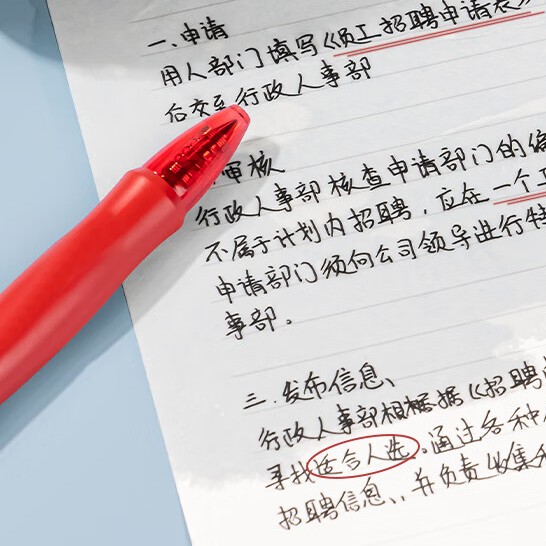 一、申请
用人部门填写《员工招聘申请表》
后交至行政人事部
审核
行政人事部核查申请部门的编
不属于计划内招聘，应在一个工
申请部门须向公司领导进行特
事部。
三.发布信息、
行政人事部根据《招聘
寻找适合人选。通过各种
招聘信息、并负责收集和